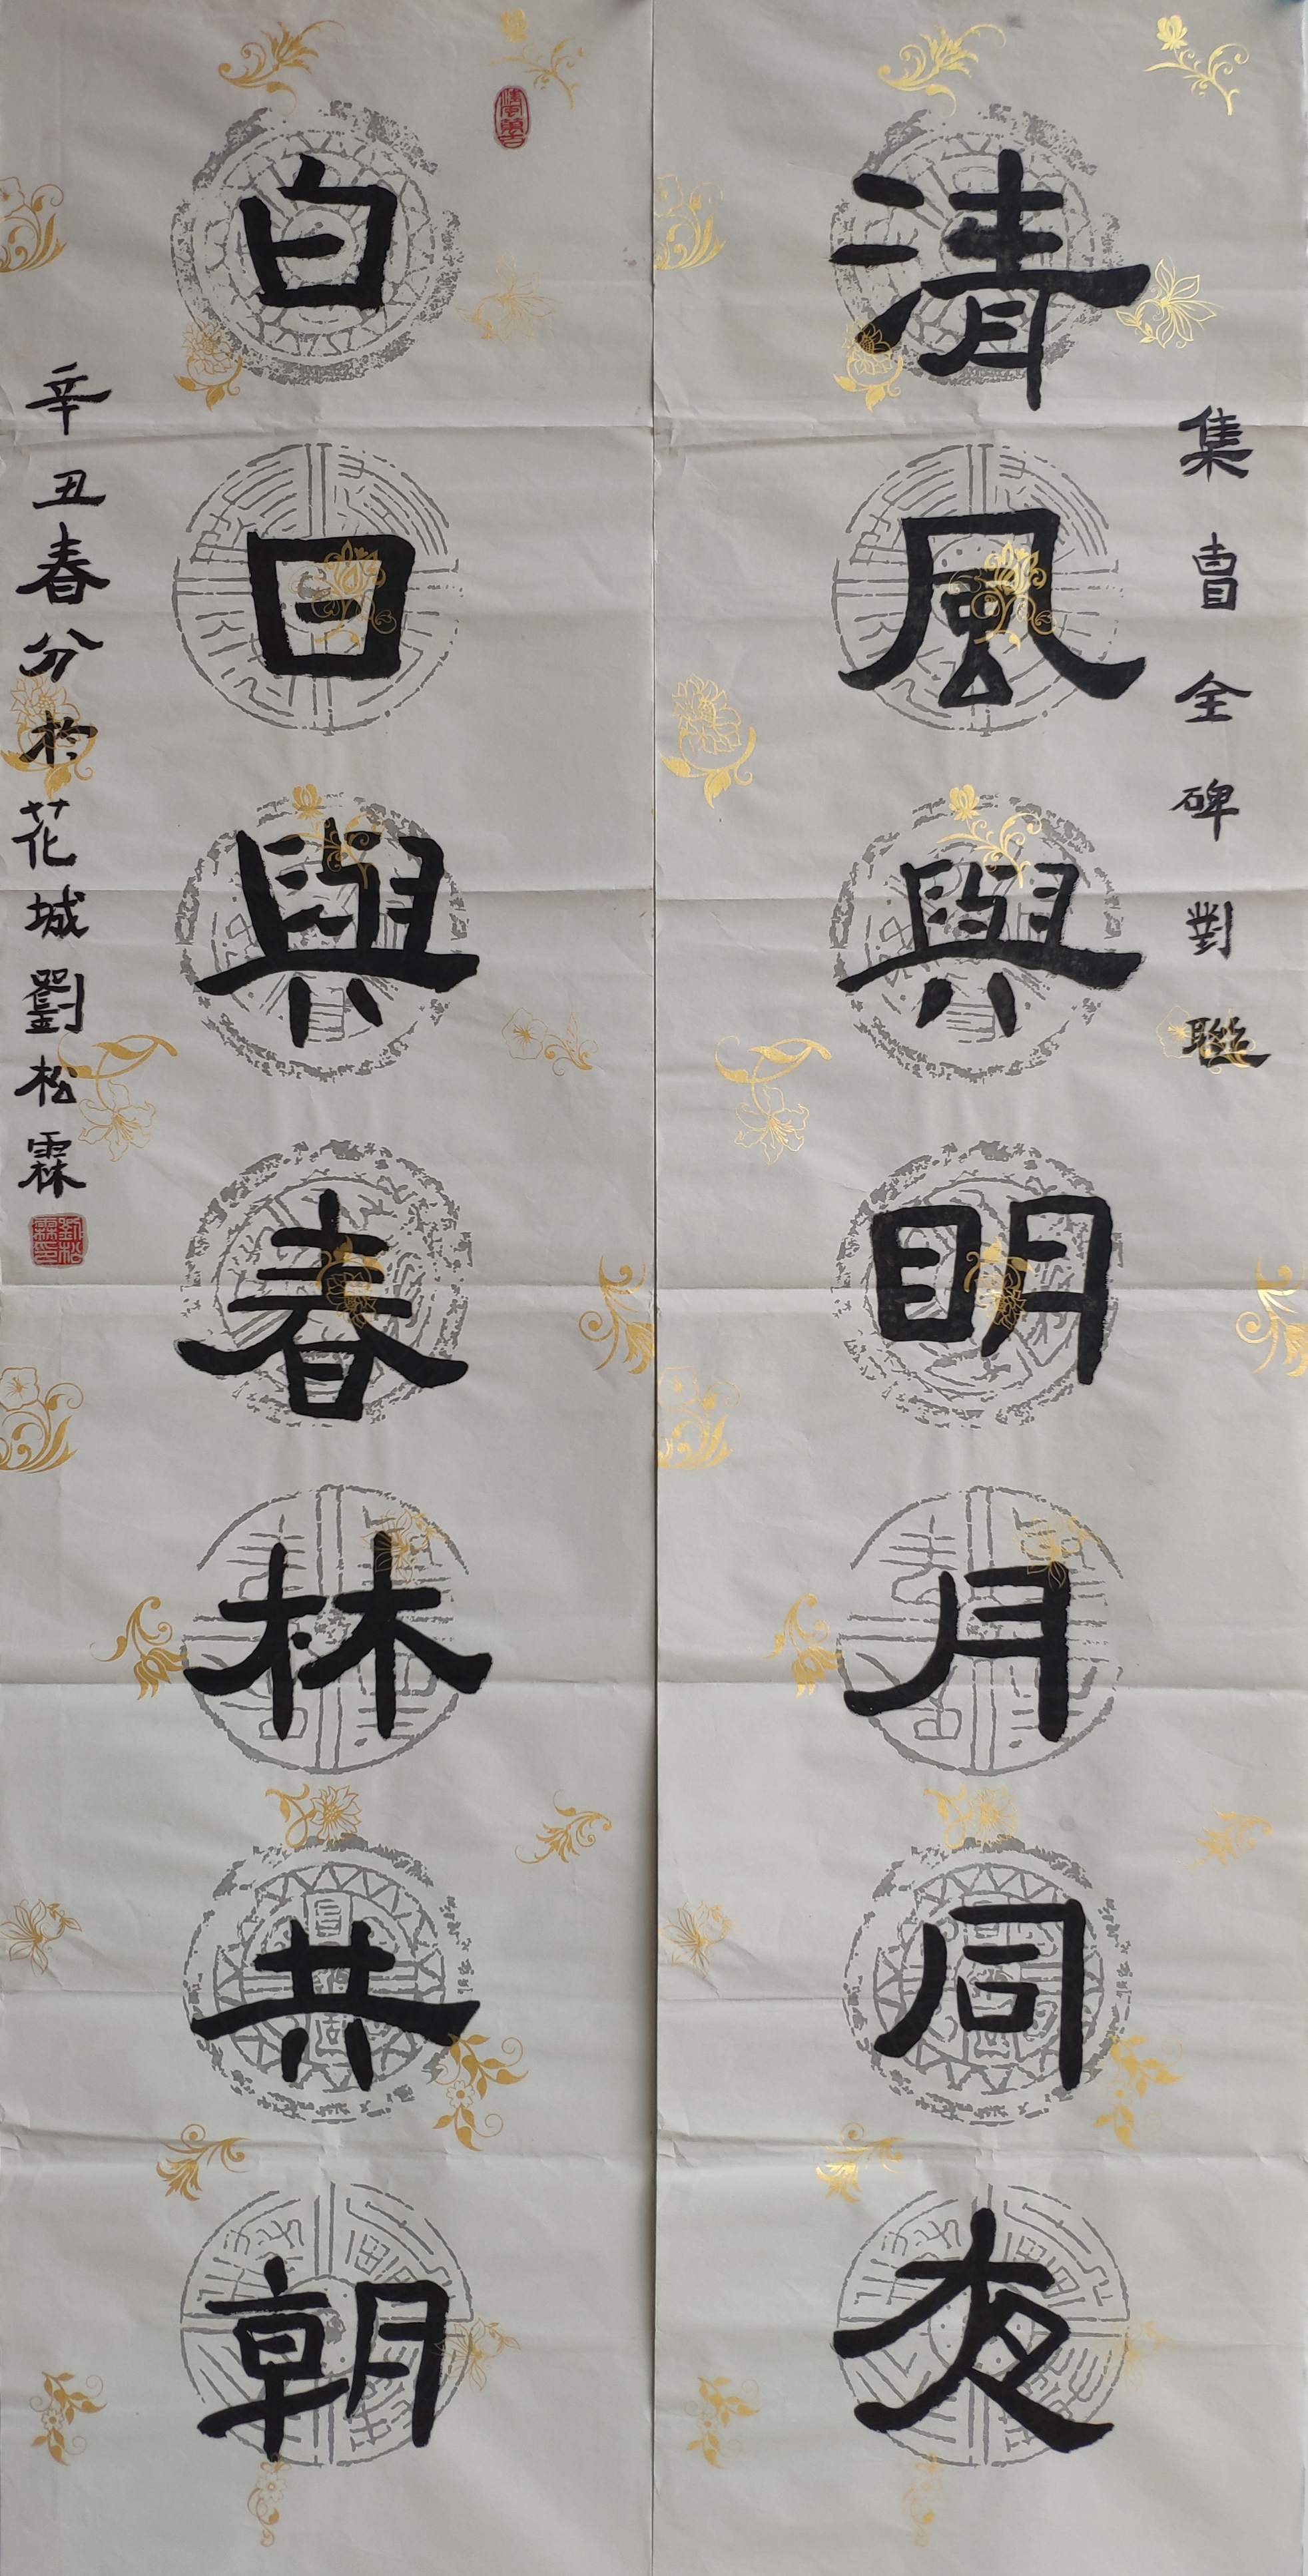 集曹全碑對聯
清風與明月同夜
白日與春林共朝
辛丑春分於花城劉松霖
劉松霖印